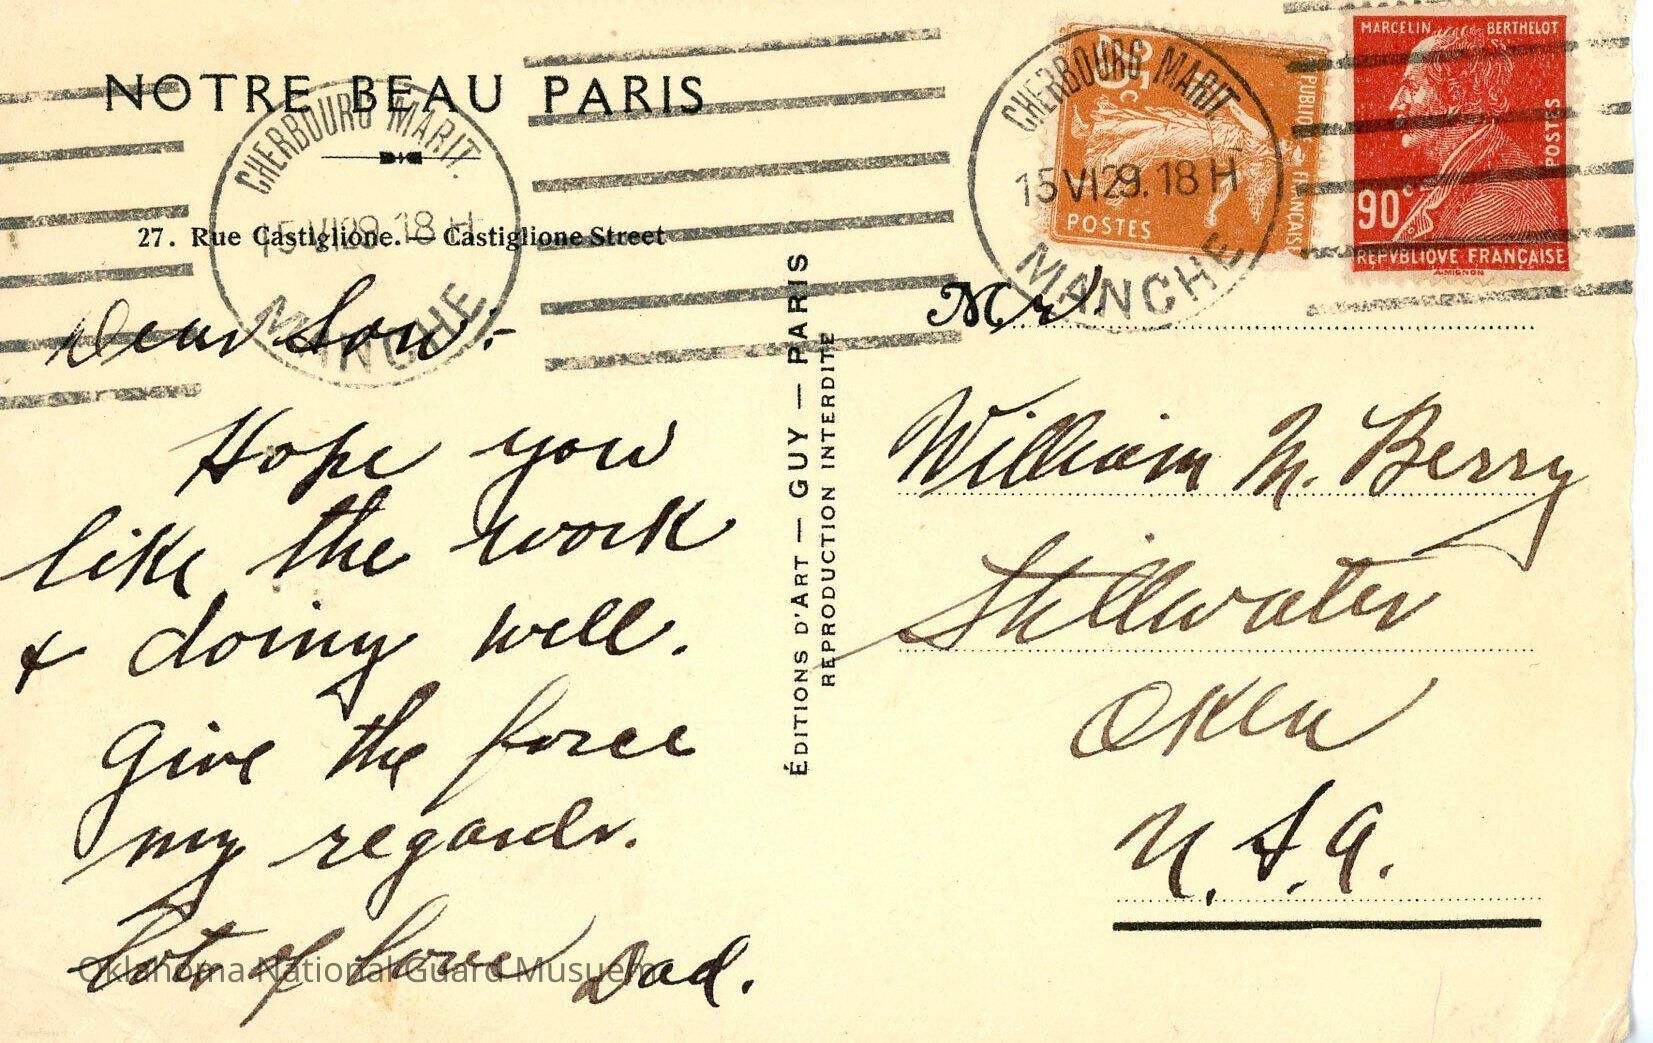 NOTRE BEAU PARIS
27. Rue Castiglione. — Castiglione Street
CHERBOURG MARIT.
15 VI 29. 18 H
MANCHE
CHERBOURG MARIT.
15 VI 29. 18 H
MANCHE
25c
POSTES
RÉPUBLIQUE FRANÇAISE
MARCELIN BERTHELOT
POSTES
90c
REPVBLIQVE FRANÇAISE
A.MIGNON
Dear Son:-
Hope you
like the work
& doing well.
Give the force
my regards.
Lots of love Dad.
ÉDITIONS D'ART — GUY — PARIS
REPRODUCTION INTERDITE
Mr.
William M. Berry
Stillwater
Okla
U.S.A.
Oklahoma National Guard Musuem